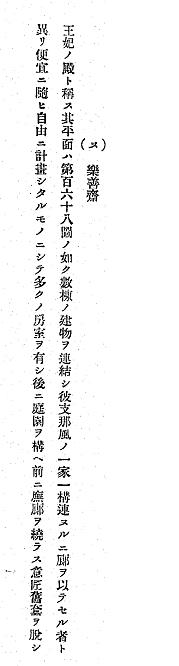 （ヌ）　樂善齋
王妃ノ殿ト稱ス其平面ハ第百六十八圖ノ如ク數棟ノ建物ヲ連結シ彼支那風ノ一家一構連ヌルニ廊ヲ以テセル者ト
異リ便宜ニ隨ヒ自由ニ計畫シタルモノニシテ多クノ房室ヲ有シ後ニ庭園ヲ構ヘ前ニ廡廊ヲ繞ラス意匠舊套ヲ脫シ